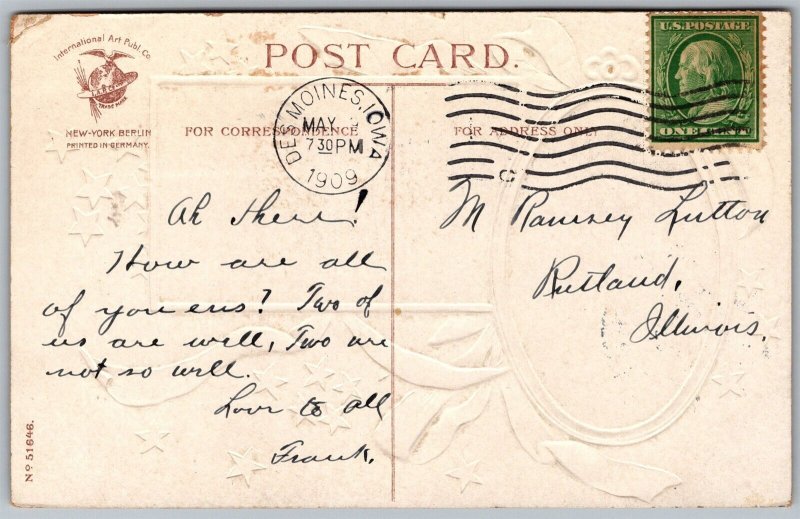 International Art Publ. Co
TRADE MARK
NEW-YORK BERLIN
PRINTED IN GERMANY.
POST CARD.
FOR CORRESPONDENCE
FOR ADDRESS ONLY.
DES MOINES, IOWA
MAY
730PM
1909
C
U.S. POSTAGE
ONE CENT
Ah there!
How are all
of you ens? Two of
us are well, Two are
not so well.
Love to all
Frank.
M Ramsey Lutton
Rutland,
Illinois.
No 51646.